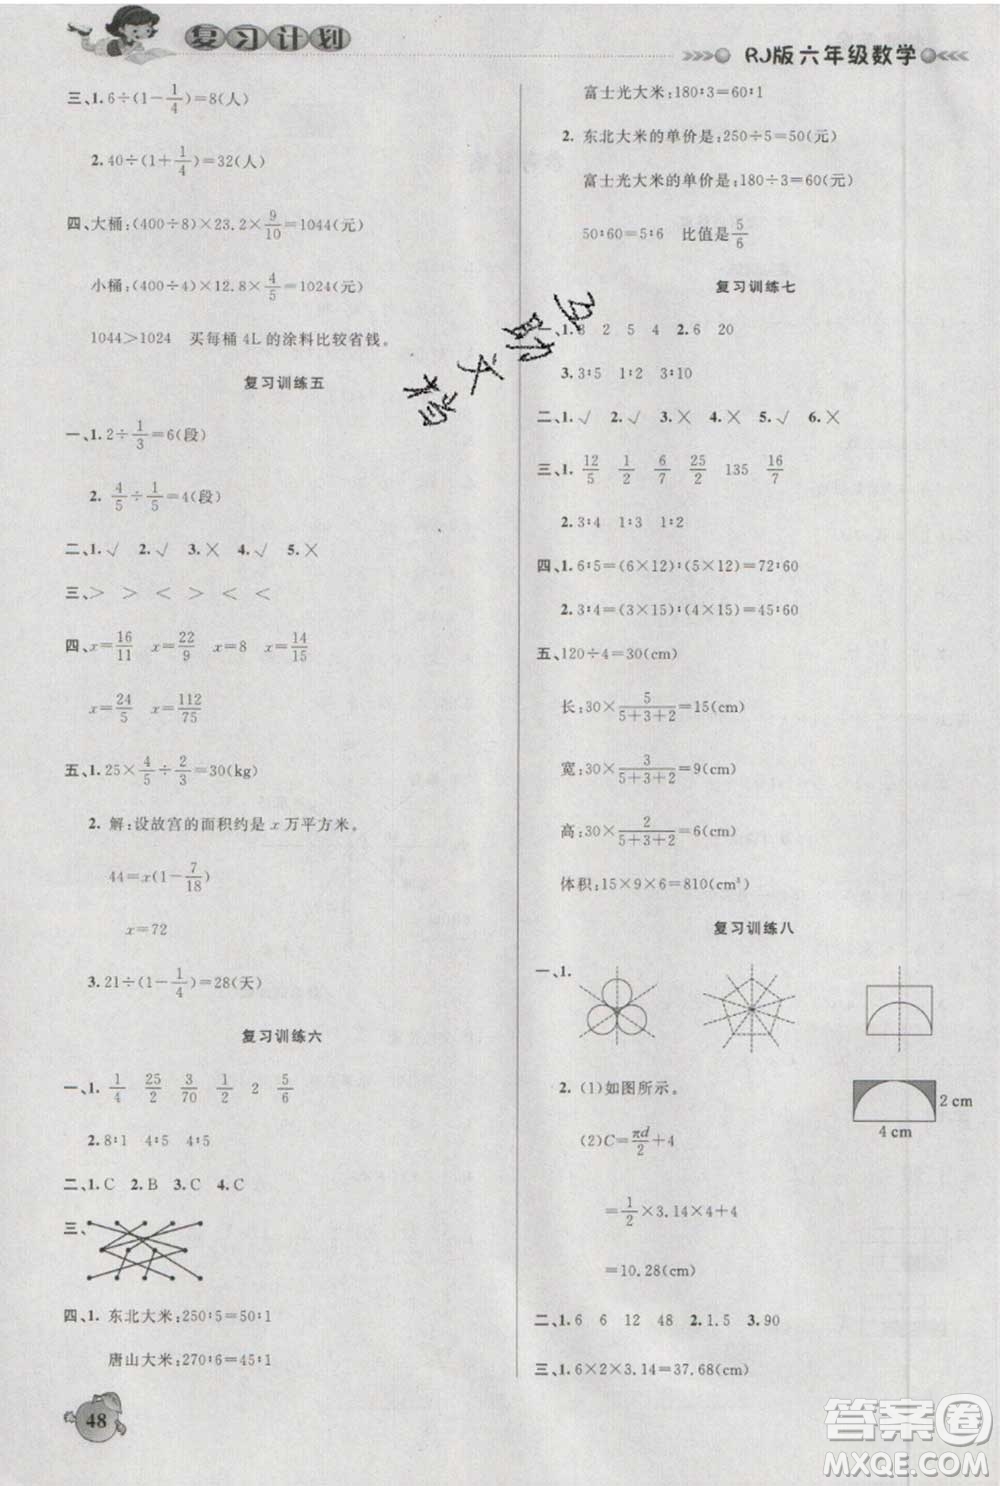 复习计划
RJ版六年级数学
三、1. 6÷(1−1/4)=8(人)
2. 40÷(1+1/4)=32(人)
四、大桶:(400÷8)×23.2×9/10=1044(元)
小桶:(400÷4)×12.8×4/5=1024(元)
1044>1024 买每桶4L的涂料比较省钱。
复习训练五
一、1. 2÷1/3=6(段)
2. 4/5÷1/5=4(段)
二、1.√ 2.√ 3.× 4.√ 5.×
三、> > < > < <
四、x=16/11 x=22/9 x=8 x=14/15
x=24/5 x=112/75
五、1. 25×4/5÷2/3=30(kg)
2. 解:设故宫的面积约是x万平方米。
44=x(1−7/18)
x=72
3. 21÷(1−1/4)=28(天)
复习训练六
一、1. 1/4 25/2 3/70 1/6 2 5/6
2. 8∶1 4∶5 4∶5
二、1. C 2. B 3. C 4. C
三、
四、1. 东北大米:250∶5=50∶1
唐山大米:270∶6=45∶1
48
富士光大米:180∶3=60∶1
2. 东北大米的单价是:250÷5=50(元)
富士光大米的单价是:180÷3=60(元)
50∶60=5∶6 比值是5/6
复习训练七
一、1. 8 2 5 4 2. 6 20
3. 3∶5 1∶2 3∶10
二、1.√ 2.√ 3.× 4.× 5.√ 6.×
三、1. 12/5 1/2 6/7 25/2 135 16/7
2. 3∶4 1∶3 1∶2
四、1. 6∶5=(6×12)∶(5×12)=72∶60
2. 3∶4=(3×15)∶(4×15)=45∶60
五、120÷4=30(cm)
长:30×5/(5+3+2)=15(cm)
宽:30×3/(5+3+2)=9(cm)
高:30×2/(5+3+2)=6(cm)
体积:15×9×6=810(cm³)
复习训练八
一、1.
2. (1)如图所示。
2 cm
4 cm
(2)C=πd/2+4
=1/2×3.14×4+4
=10.28(cm)
二、1. 6 6 12 48 2. 1.5 3. 90
三、1. 6×2×3.14=37.68(cm)
答案圈
MXQE.COM